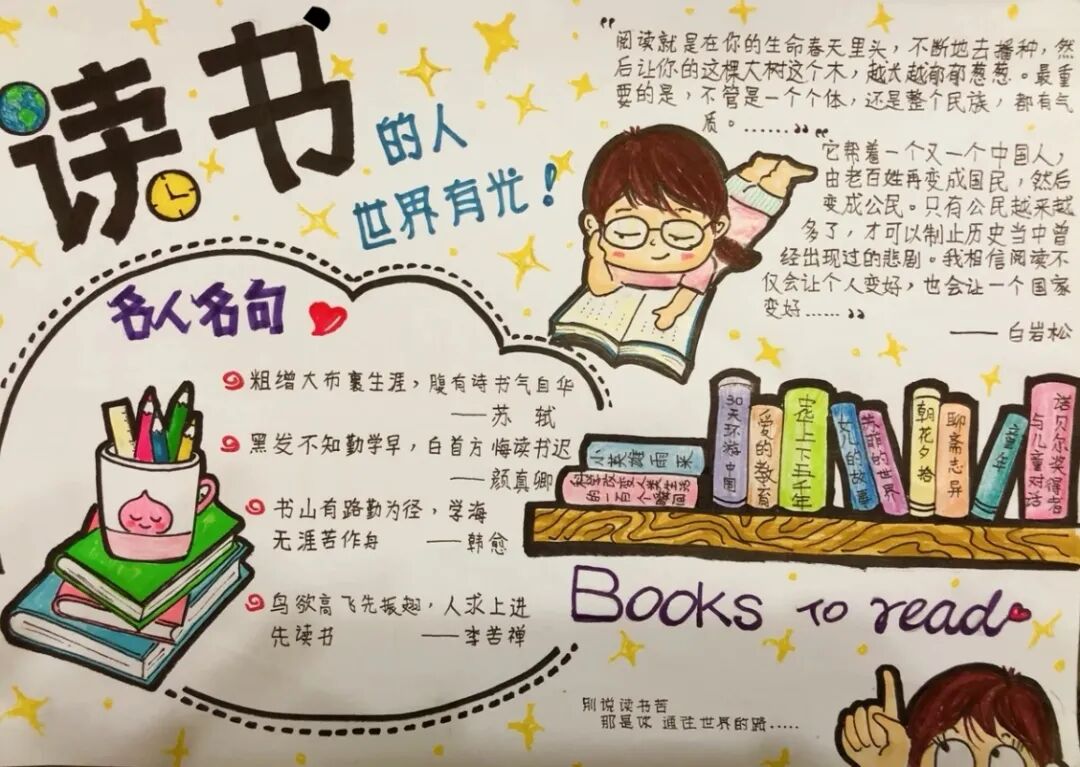 读书
的人
世界有光！
“阅读就是在你的生命春天里头，不断地去播种，然
后让你的这棵大树这个木，越大越郁郁葱葱。最重
要的是，不管是一个个体，还是整个民族，都有气
质。……”“
它帮着一个又一个中国人，
由老百姓再变成国民，然后
变成公民。只有公民越来越
多了，才可以制止历史当中曾
经出现过的悲剧。我相信阅读不
仅会让个人变好，也会让一个国家
变好……”
——白岩松
名人名句
粗缯大布裹生涯，腹有诗书气自华
——苏 轼
黑发不知勤学早，白首方悔读书迟
——颜真卿
书山有路勤为径，学海
无涯苦作舟 ——韩愈
鸟欲高飞先振翅，人求上进
先读书 ——李苦禅
小英雄雨来
科学改变人类生活
的一百个瞬间
30天环游中国
爱的教育
中华上下五千年
女儿的故事
苏菲的世界
朝花夕拾
聊斋志异
童年
诺贝尔奖得者
与儿童对话
Books To read
别说读书苦
那是你 通往世界的路.....